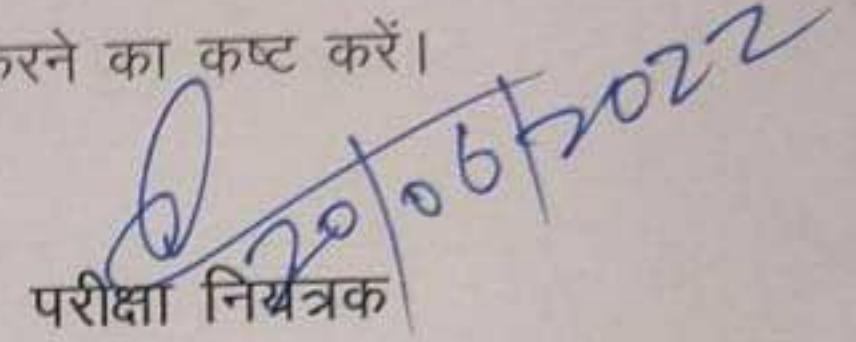 करने का कष्ट करें।
20/06/2022
परीक्षा नियंत्रक